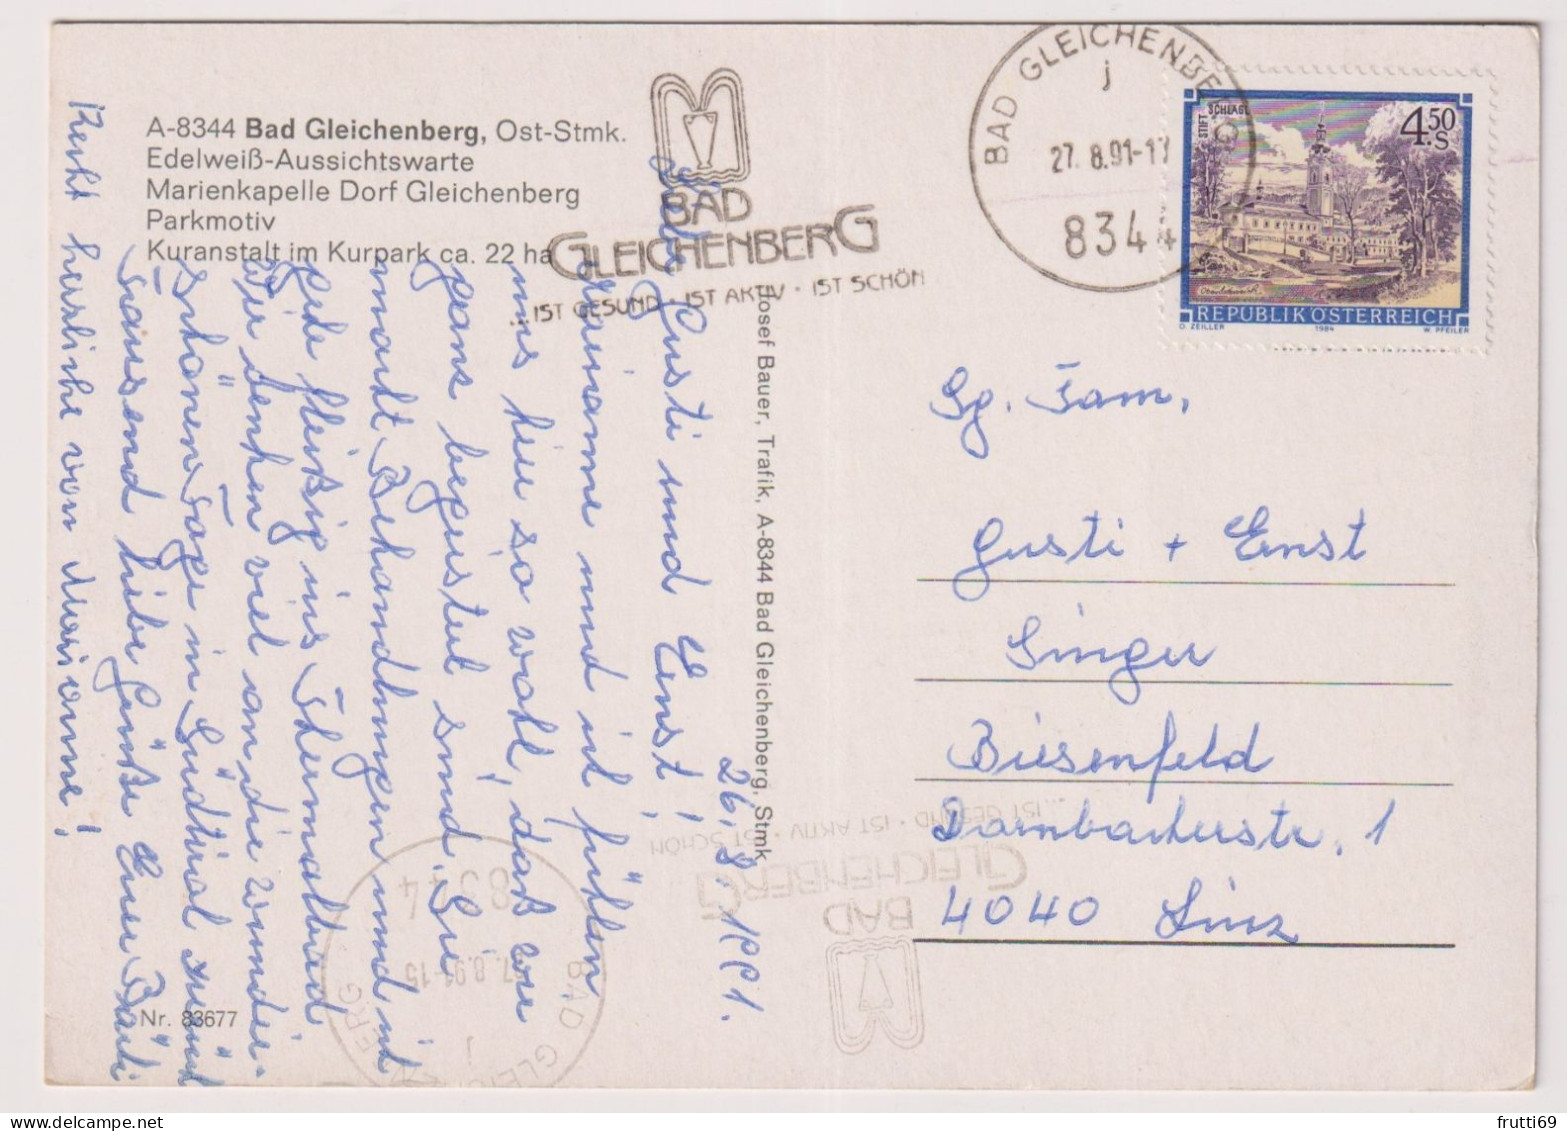 A-8344 Bad Gleichenberg, Ost-Stmk.
Edelweiß-Aussichtswarte
Marienkapelle Dorf Gleichenberg
Parkmotiv
Kuranstalt im Kurpark ca. 22 ha
BAD
GLEICHENBERG
...IST GESUND · IST AKTIV · IST SCHÖN
BAD GLEICHENBERG
j
27.8.91-17
8344
STIFT SCHLÄGL
4.50 S
REPUBLIK ÖSTERREICH
O. ZEILLER 1984 W. PFEILER
26.8.1991.
Liebe Gusti und Ernst!
Marianne und ich fühlen
uns hier so wohl, daß wir
ganz begeistert sind. Sie
macht Behandlungen und ich
gehe fleißig ins Thermalbad
Wir denken viel an die wunder-
schönen Tage in Südtirol zurück
Tausend liebe Grüße Eure
Recht herzliche von Marianne!
Josef Bauer, Trafik, A-8344 Bad Gleichenberg, Stmk.
Fam.
Gusti + Ernst
Singer
Biesenfeld
Dornbacherstr. 1
4040 Linz
...IST GESUND · IST AKTIV · IST SCHÖN
GLEICHENBERG
BAD
8344
27.8.91-15
j
BAD GLEICHENBERG
Nr. 83677
frutti69